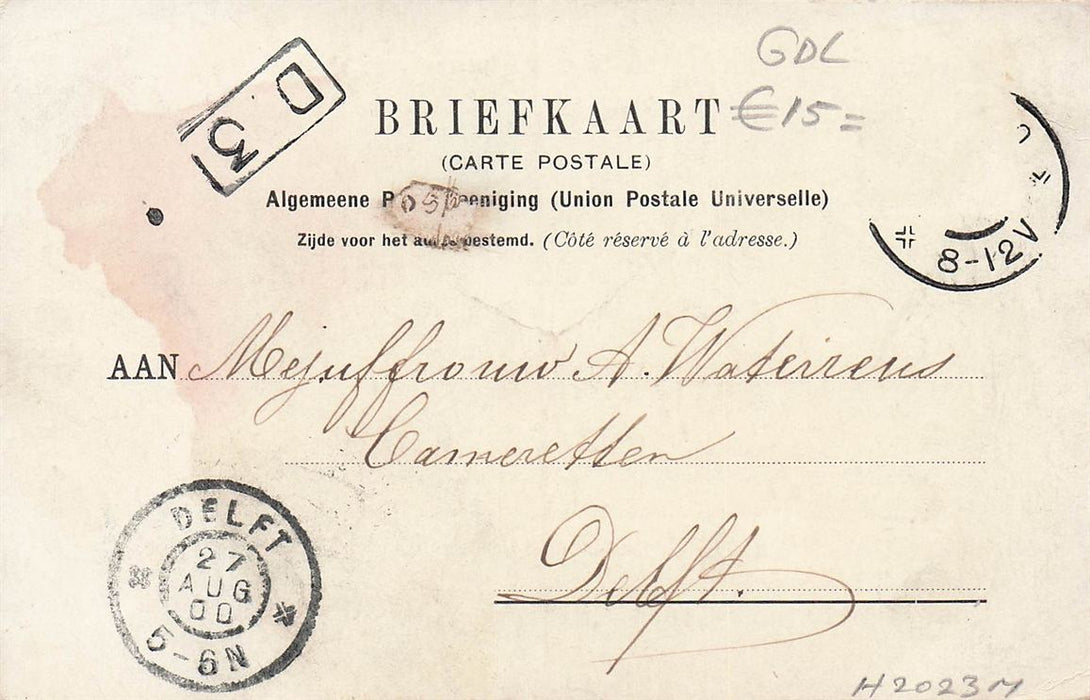 GDL
D 3
BRIEFKAART €15=
(CARTE POSTALE)
Algemeene P eeniging (Union Postale Universelle)
Zijde voor het bestemd. (Côté réservé à l'adresse.)
8-12V
AAN Mejuffrouw A. Wateireus
Cameretten
Delft.
DELFT
27
AUG
00
5-6N
H2023M